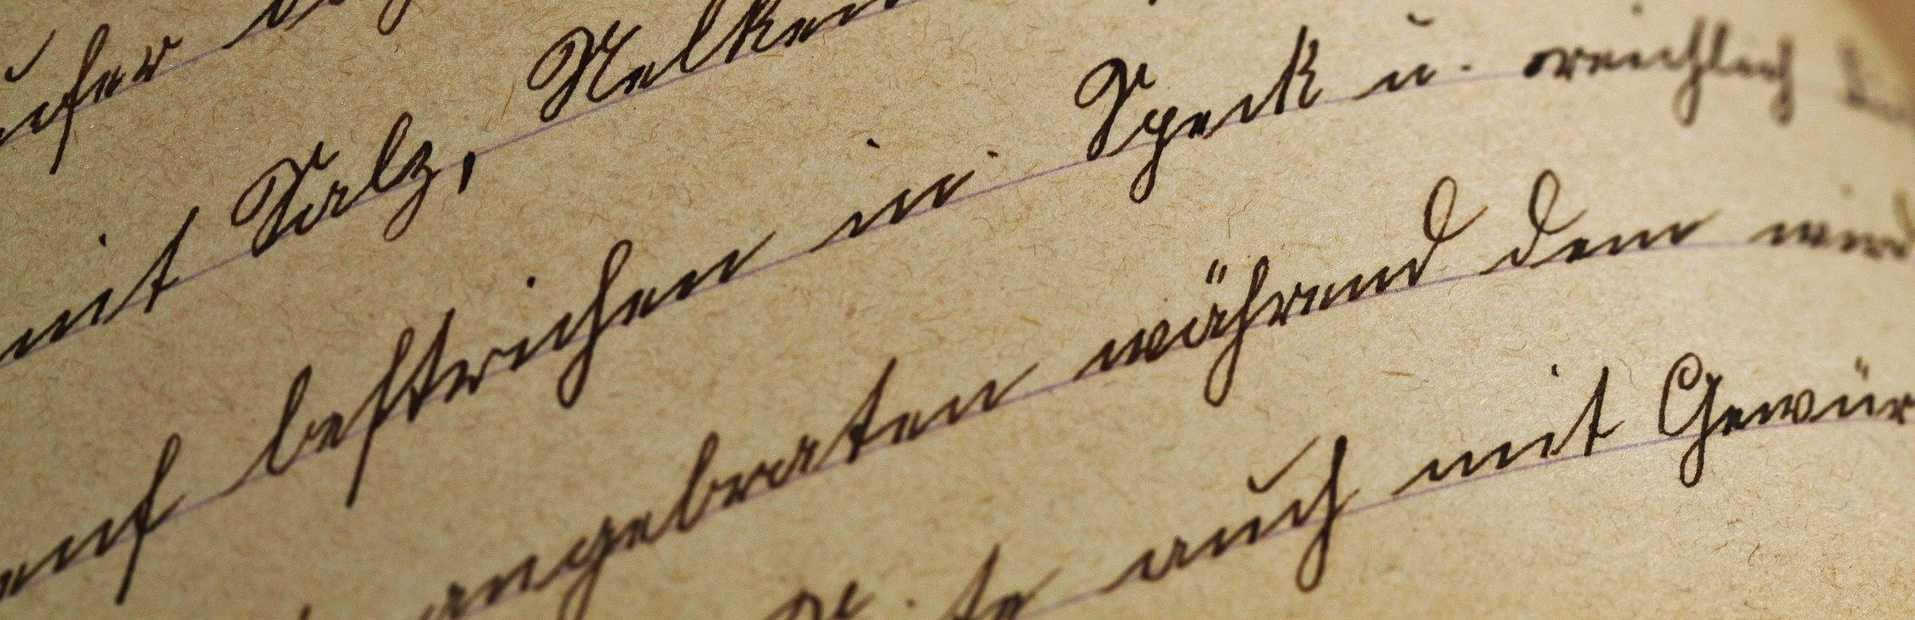 mit Salz, Nelken
bestrichen in Speck u. reichlich
angebraten während dem wird
auch mit Gewür